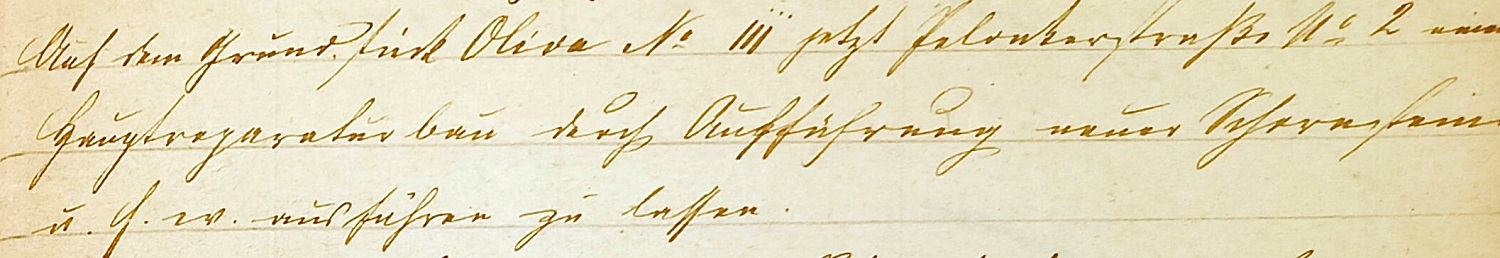 Auf dem Grundstück Oliva No 111 jetzt Pelonkerstraße No 2 einen
Hauptreparaturbau durch Aufführung neuer Schornsteine
u. s. w. ausführen zu lassen.